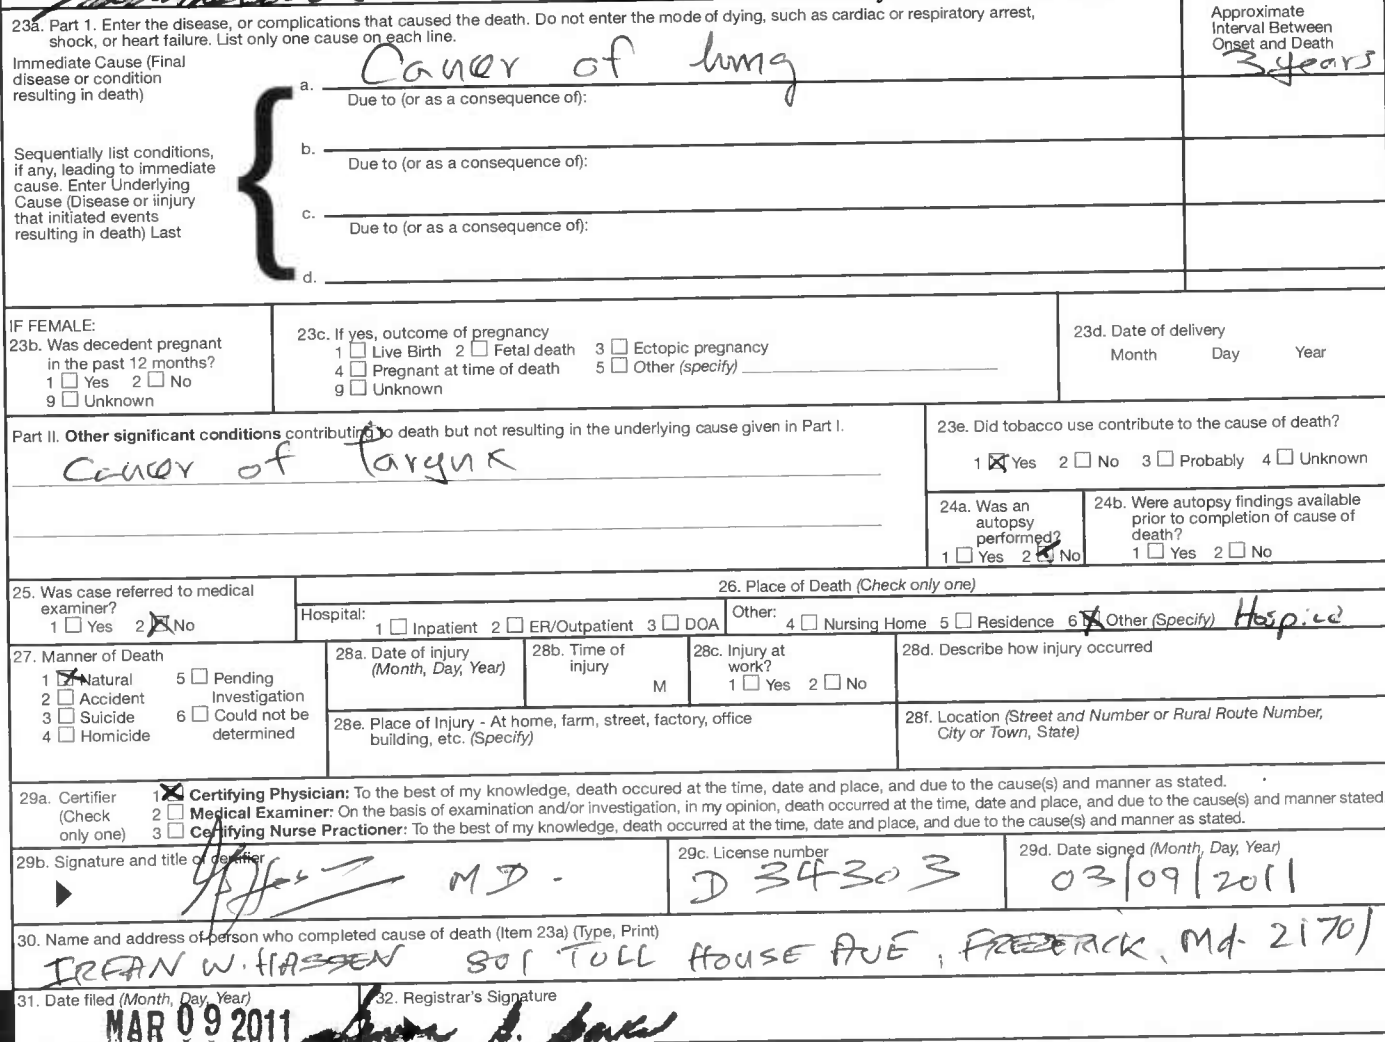 23a. Part 1. Enter the disease, or complications that caused the death. Do not enter the mode of dying, such as cardiac or respiratory arrest,
shock, or heart failure. List only one cause on each line.
Approximate
Interval Between
Onset and Death
Immediate Cause (Final
disease or condition
resulting in death)
a. Cancer of lung
3 years
Due to (or as a consequence of):
Sequentially list conditions,
if any, leading to immediate
cause. Enter Underlying
Cause (Disease or iinjury
that initiated events
resulting in death) Last
b.
Due to (or as a consequence of):
c.
Due to (or as a consequence of):
d.
IF FEMALE:
23b. Was decedent pregnant
in the past 12 months?
1 Yes 2 No
9 Unknown
23c. If yes, outcome of pregnancy
1 Live Birth 2 Fetal death 3 Ectopic pregnancy
4 Pregnant at time of death 5 Other (specify)
9 Unknown
23d. Date of delivery
Month Day Year
Part II. Other significant conditions contributing to death but not resulting in the underlying cause given in Part I.
Cancer of larynx
23e. Did tobacco use contribute to the cause of death?
1 Yes 2 No 3 Probably 4 Unknown
24a. Was an
autopsy
performed?
1 Yes 2 No
24b. Were autopsy findings available
prior to completion of cause of
death?
1 Yes 2 No
25. Was case referred to medical
examiner?
1 Yes 2 No
26. Place of Death (Check only one)
Hospital: 1 Inpatient 2 ER/Outpatient 3 DOA
Other: 4 Nursing Home 5 Residence 6 Other (Specify) Hospice
27. Manner of Death
1 Natural 5 Pending
2 Accident Investigation
3 Suicide 6 Could not be
4 Homicide determined
28a. Date of injury
(Month, Day, Year)
28b. Time of
injury
M
28c. Injury at
work?
1 Yes 2 No
28d. Describe how injury occurred
28e. Place of Injury - At home, farm, street, factory, office
building, etc. (Specify)
28f. Location (Street and Number or Rural Route Number,
City or Town, State)
29a. Certifier
(Check
only one)
1 Certifying Physician: To the best of my knowledge, death occured at the time, date and place, and due to the cause(s) and manner as stated.
2 Medical Examiner: On the basis of examination and/or investigation, in my opinion, death occurred at the time, date and place, and due to the cause(s) and manner stated
3 Certifying Nurse Practioner: To the best of my knowledge, death occurred at the time, date and place, and due to the cause(s) and manner as stated.
29b. Signature and title of certifier
MD.
29c. License number
D 34303
29d. Date signed (Month, Day, Year)
03/09/2011
30. Name and address of person who completed cause of death (Item 23a) (Type, Print)
IRFAN W. HASSEN 801 TOLL HOUSE AVE, FREDERICK, Md. 21701
31. Date filed (Month, Day, Year)
MAR 09 2011
32. Registrar's Signature